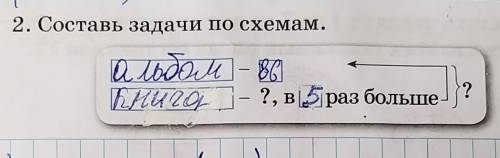 2. Составь задачи по схемам.
альбом – 86
книга – ?, в 5 раз больше ?